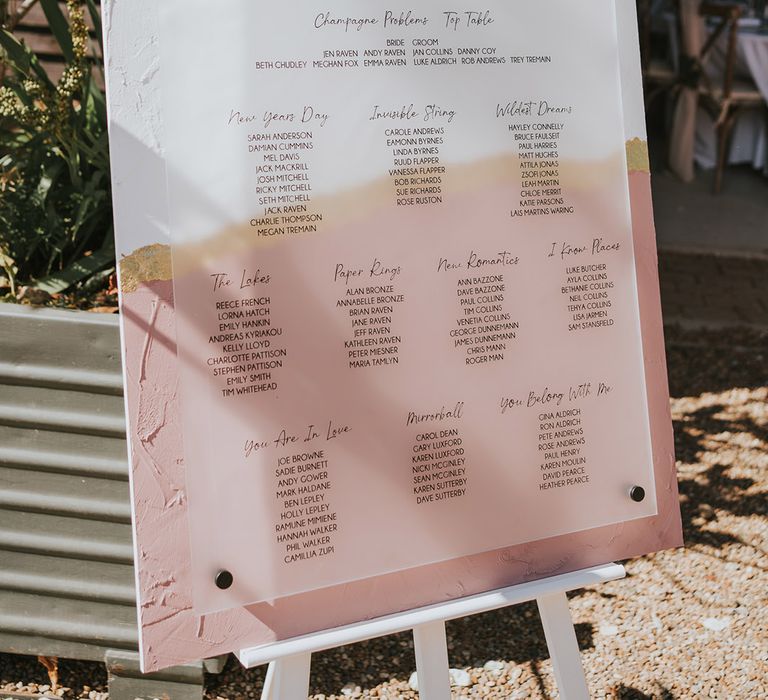 Champagne Problems Top Table
BRIDE GROOM
JEN RAVEN ANDY RAVEN JAN COLLINS DANNY COY
BETH CHUDLEY MEGHAN FOX EMMA RAVEN LUKE ALDRICH ROB ANDREWS TREY TREMAIN
New Years Day
SARAH ANDERSON
DAMIAN CUMMINS
MEL DAVIS
JACK MACKRILL
JOSH MITCHELL
RICKY MITCHELL
SETH MITCHELL
JACK RAVEN
CHARLIE THOMPSON
MEGAN TREMAIN
Invisible String
CAROLE ANDREWS
EAMONN BYRNES
LINDA BYRNES
RUUD FLAPPER
VANESSA FLAPPER
BOB RICHARDS
SUE RICHARDS
ROSE RUSTON
Wildest Dreams
HAYLEY CONNELLY
BRUCE FAULSEIT
PAUL HARRIES
MATT HUGHES
ATTILA JONAS
ZSOFI JONAS
LEAH MARTIN
CHLOE MERRIT
KATIE PARSONS
LAIS MARTINS WARING
The Lakes
REECE FRENCH
LORNA HATCH
EMILY HANKIN
ANDREAS KYRIAKOU
KELLY LLOYD
CHARLOTTE PATTISON
STEPHEN PATTISON
EMILY SMITH
TIM WHITEHEAD
Paper Rings
ALAN BRONZE
ANNABELLE BRONZE
BRIAN RAVEN
JANE RAVEN
JEFF RAVEN
KATHLEEN RAVEN
PETER MIESNER
MARIA TAMLYN
New Romantics
ANN BAZZONE
DAVE BAZZONE
PAUL COLLINS
TIM COLLINS
VENETIA COLLINS
GEORGE DUNNEMANN
JAMES DUNNEMANN
CHRIS MANN
ROGER MAN
I Know Places
LUKE BUTCHER
AYLA COLLINS
BETHANIE COLLINS
NEIL COLLINS
TEHYA COLLINS
LISA JARMEN
SAM STANSFIELD
You Are In Love
JOE BROWNE
SADIE BURNETT
ANDY GOWER
MARK HALDANE
BEN LEPLEY
HOLLY LEPLEY
RAMUNE MIMIENE
HANNAH WALKER
PHIL WALKER
CAMILLIA ZUPI
Mirrorball
CAROL DEAN
GARY LUXFORD
KAREN LUXFORD
NICKI MCGINLEY
SEAN MCGINLEY
KAREN SUTTERBY
DAVE SUTTERBY
You Belong With Me
GINA ALDRICH
RON ALDRICH
PETE ANDREWS
ROSE ANDREWS
PAUL HENRY
KAREN MOULIN
DAVID PEARCE
HEATHER PEARCE